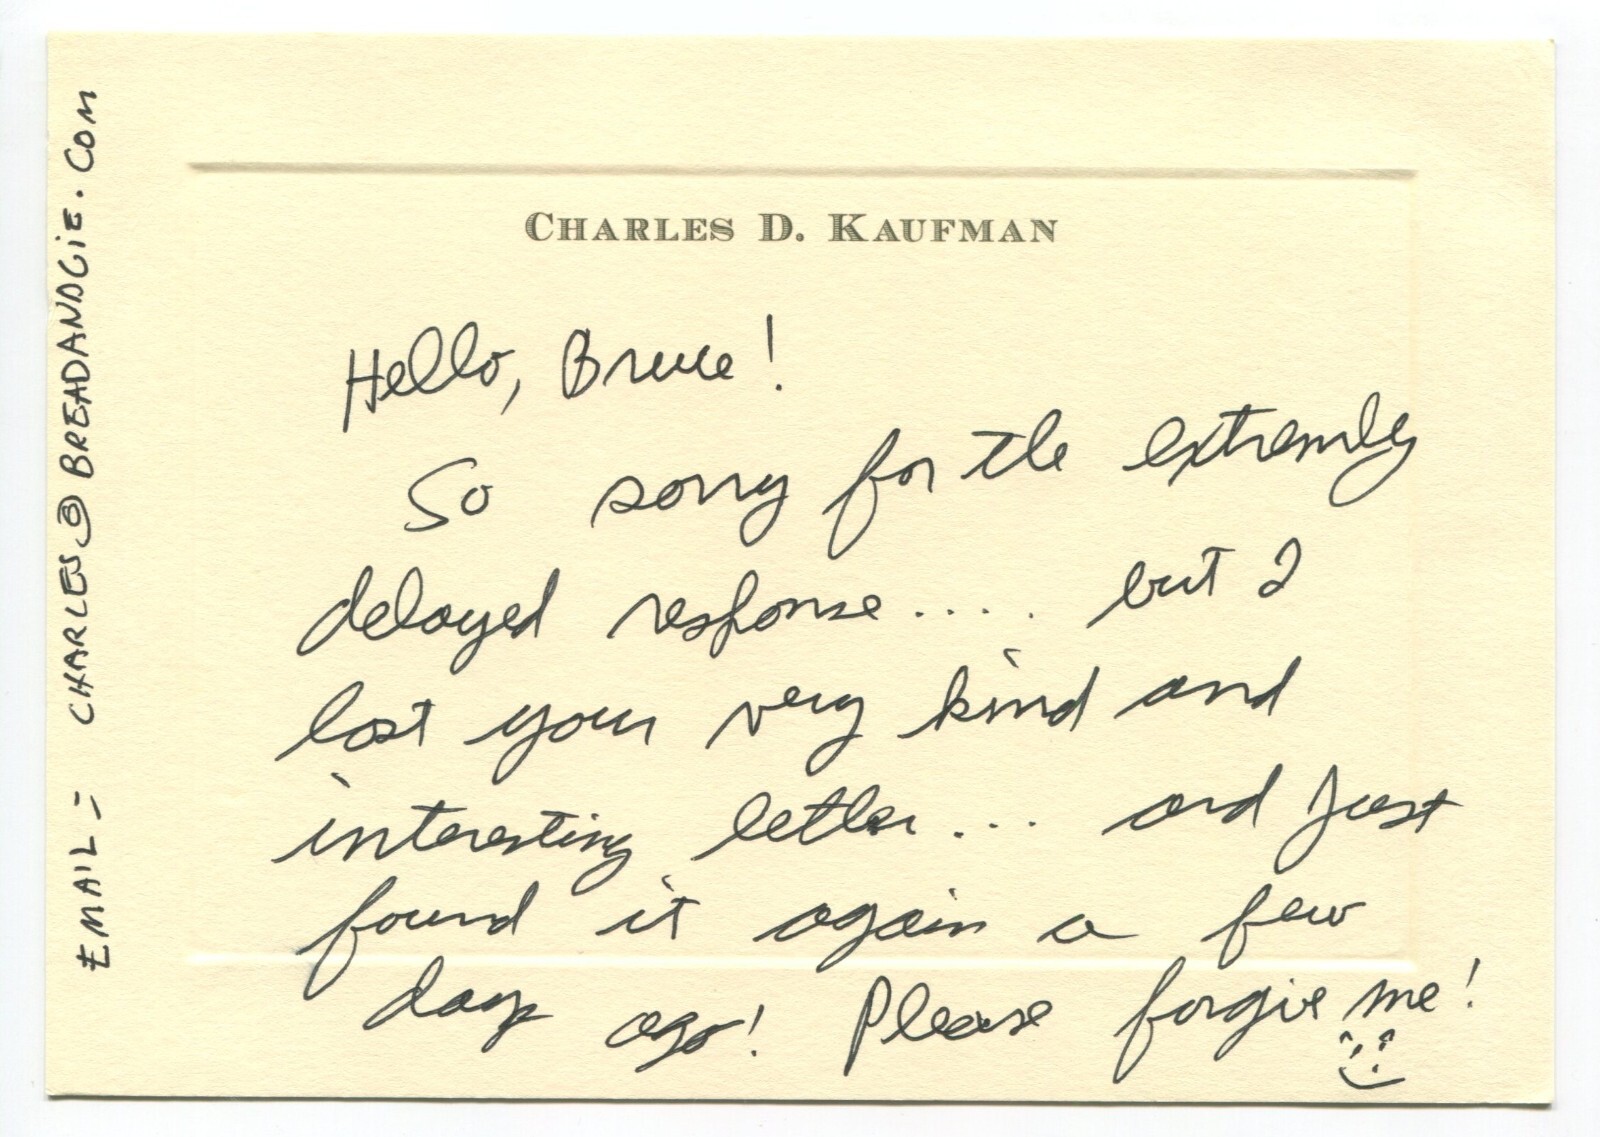 CHARLES D. KAUFMAN
Hello, Bruce!
So sorry for the extremely
delayed response.... but I
lost your very kind and
interesting letter... and just
found it again a few
days ago! Please forgive me!
EMAIL = CHARLES@BREADANDGIE.COM